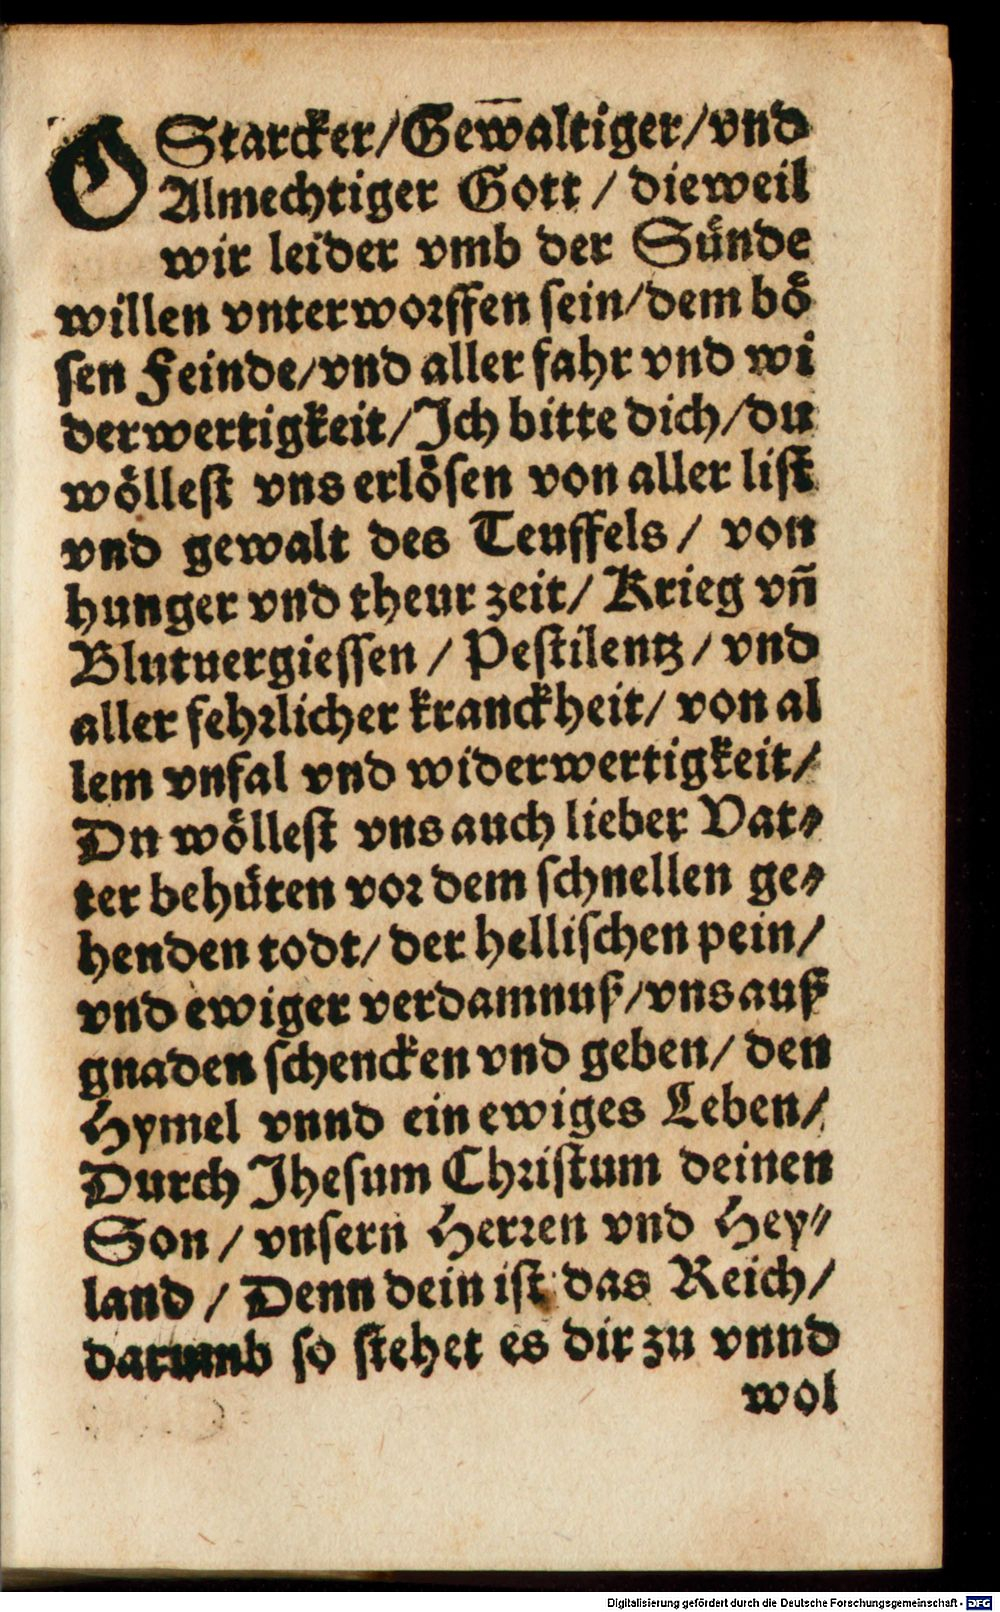 O Starcker/Gew̅altiger/vnd
Almechtiger Gott / dieweil
wir leider vmb der Sünde
willen vnterworffen sein/dem bö
sen Feinde/vnd aller fahr vnd wi
derwertigkeit/Ich bitte dich/du
wöllest vns erlösen von aller list
vnd gewalt des Teuffels / von
hunger vnd theur zeit/ Krieg vn̅
Blutuergiessen / Pestilentz / vnd
aller fehrlicher kranckheit/ von al
lem vnfal vnd widerwertigkeit/
Du wöllest vns auch lieber Vat⸗
ter behüten vor dem schnellen ge⸗
henden todt/ der hellischen pein/
vnd ewiger verdamnuß/vns auß
gnaden schencken vnd geben/ den
Hymel vnnd ein ewiges Leben/
Durch Jhesum Christum deinen
Son / vnsern Herren vnd Hey⸗
land / Denn dein ist das Reich/
darumb so stehet es dir zu vnnd
wol
Digitalisierung gefördert durch die Deutsche Forschungsgemeinschaft - DFG